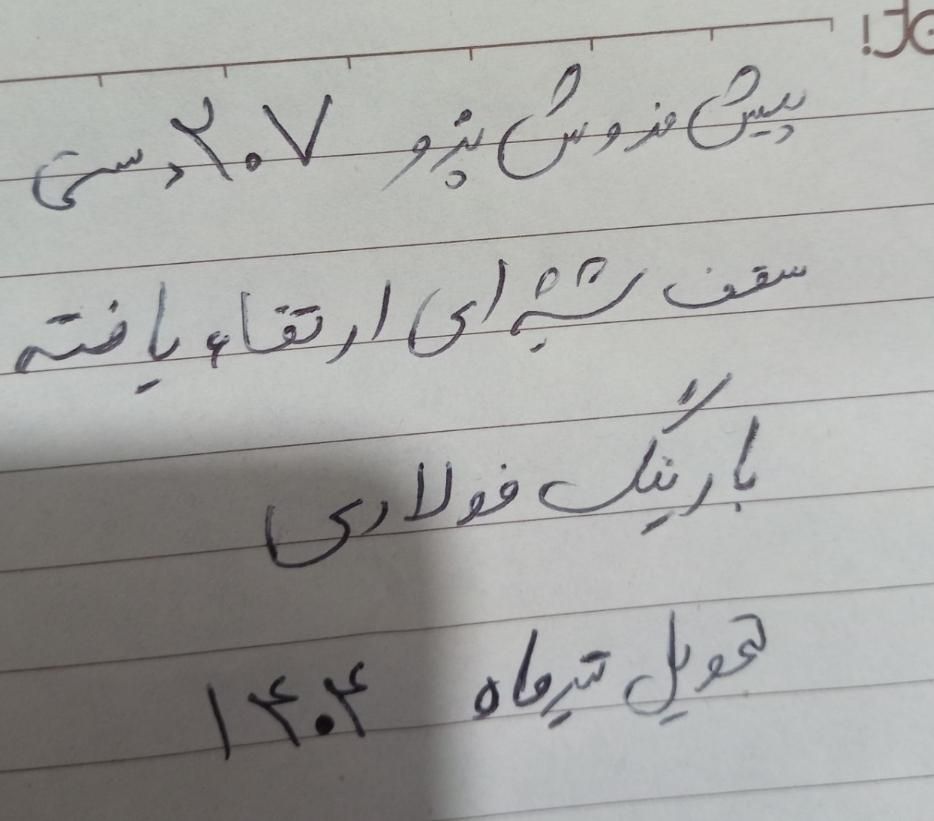 پیش فروش پژو ۲۰۷ دستی
سقف شیشه ای ارتقاء یافته
با رینگ فولادی
تحویل تیرماه ۱۴۰۴